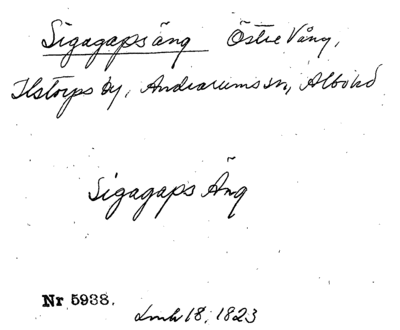 Sigagapsäng Östre Vång,
Ilstorps by, Andrarums sn, Albo hd
Sigagaps Äng
Nr 5938.
Lmh 18, 1823